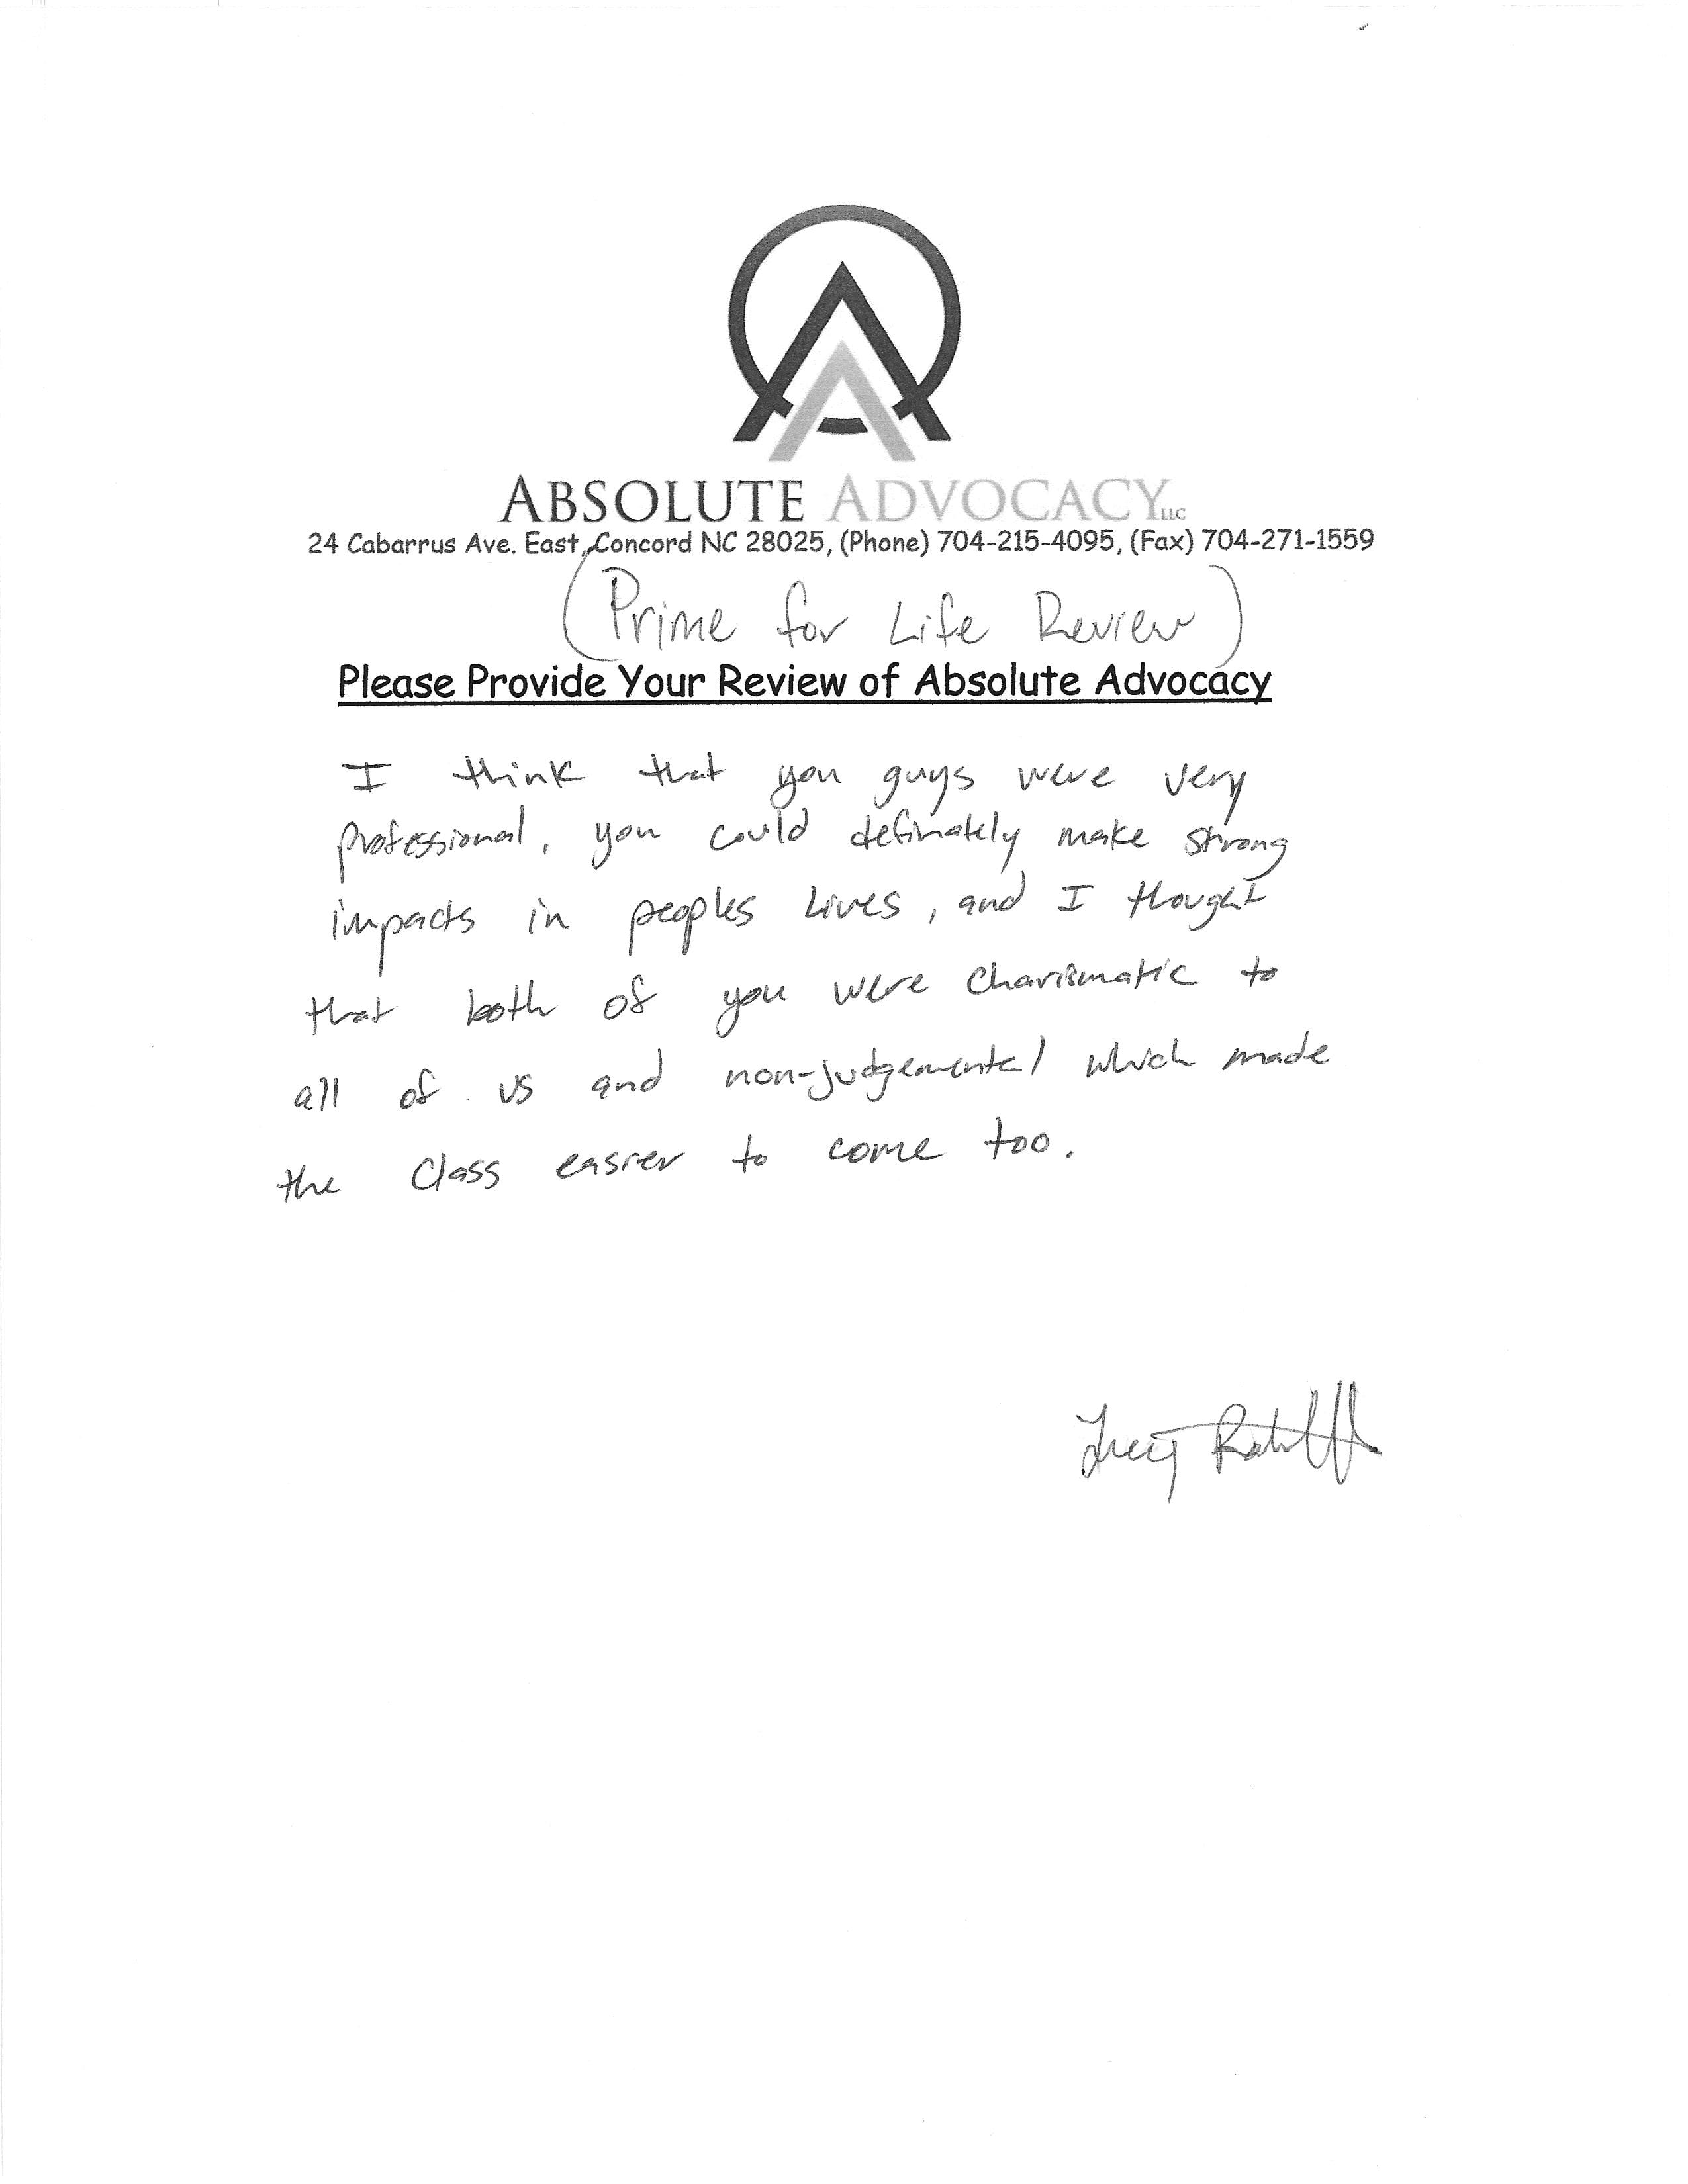 ABSOLUTE ADVOCACY LLC
24 Cabarrus Ave. East, Concord NC 28025, (Phone) 704-215-4095, (Fax) 704-271-1559
(Prime for Life Review)
Please Provide Your Review of Absolute Advocacy
I think that you guys were very
professional, you could definately make strong
impacts in peoples Lives, and I thought
that both of you were charismatic to
all of us and non-judgemental which made
the class easier to come too.